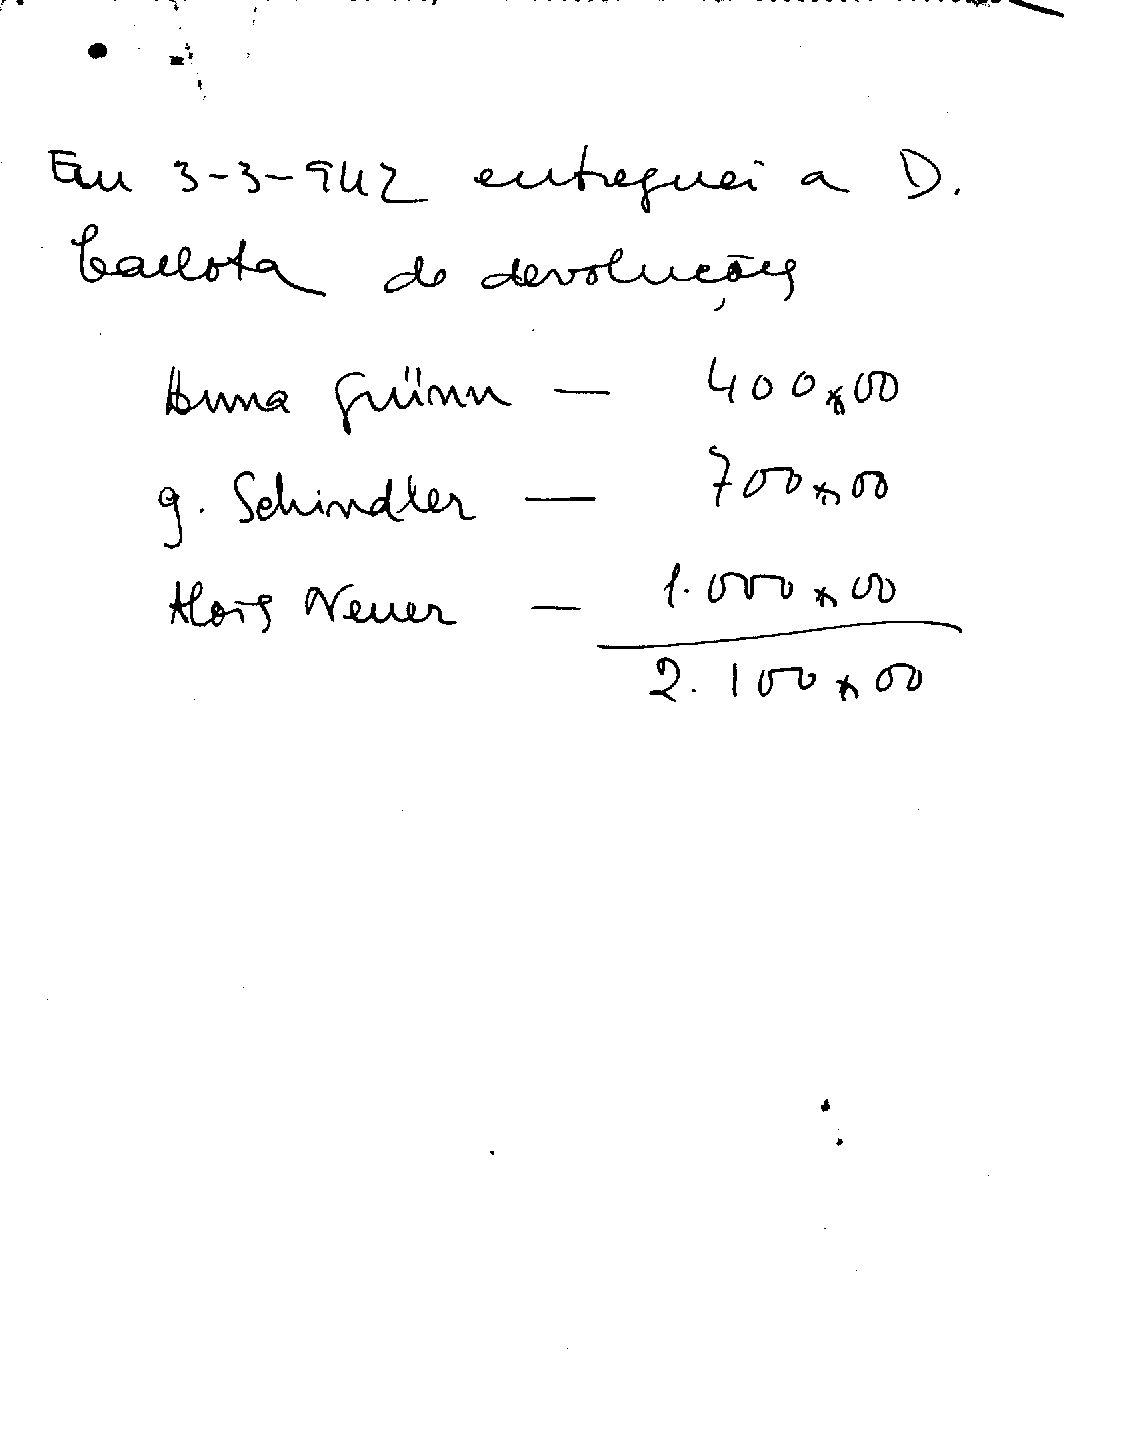 Em 3-3-942 entreguei a D.
Carlota de devoluções
Anna Grünn — 400$00
g. Schindler — 700$00
Alois Neuer — 1.000$00
2.100$00